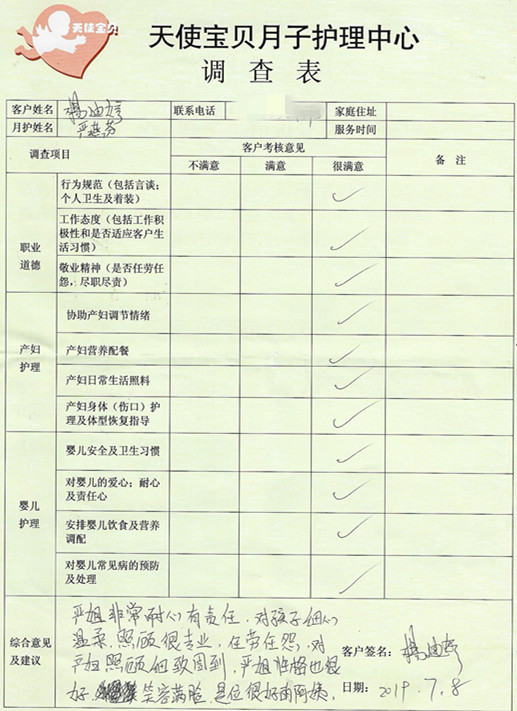 天使宝贝
天使宝贝月子护理中心
调查表
客户姓名 杨 联系电话 家庭住址
月护姓名 严 服务时间
调查项目 客户考核意见 备注
不满意 满意 很满意
职业
道德
行为规范（包括言谈；
个人卫生及着装） ✓
工作态度（包括工作积
极性和是否适应客户生
活习惯） ✓
敬业精神（是否任劳任
怨，尽职尽责） ✓
产妇
护理
协助产妇调节情绪 ✓
产妇营养配餐 ✓
产妇日常生活照料 ✓
产妇身体（伤口）护
理及体型恢复指导 ✓
婴儿
护理
婴儿安全及卫生习惯 ✓
对婴儿的爱心；耐心
及责任心 ✓
安排婴儿饮食及营养
调配 ✓
对婴儿常见病的预防
及处理 ✓
综合意见
及建议
严姐非常耐心有责任，对孩子细心
温柔，照顾很专业，任劳任怨，对
产妇照顾细致周到，严姐性格也很
好，笑容满脸，是位很好的阿姨。
客户签名：杨
日期：2019.7.8